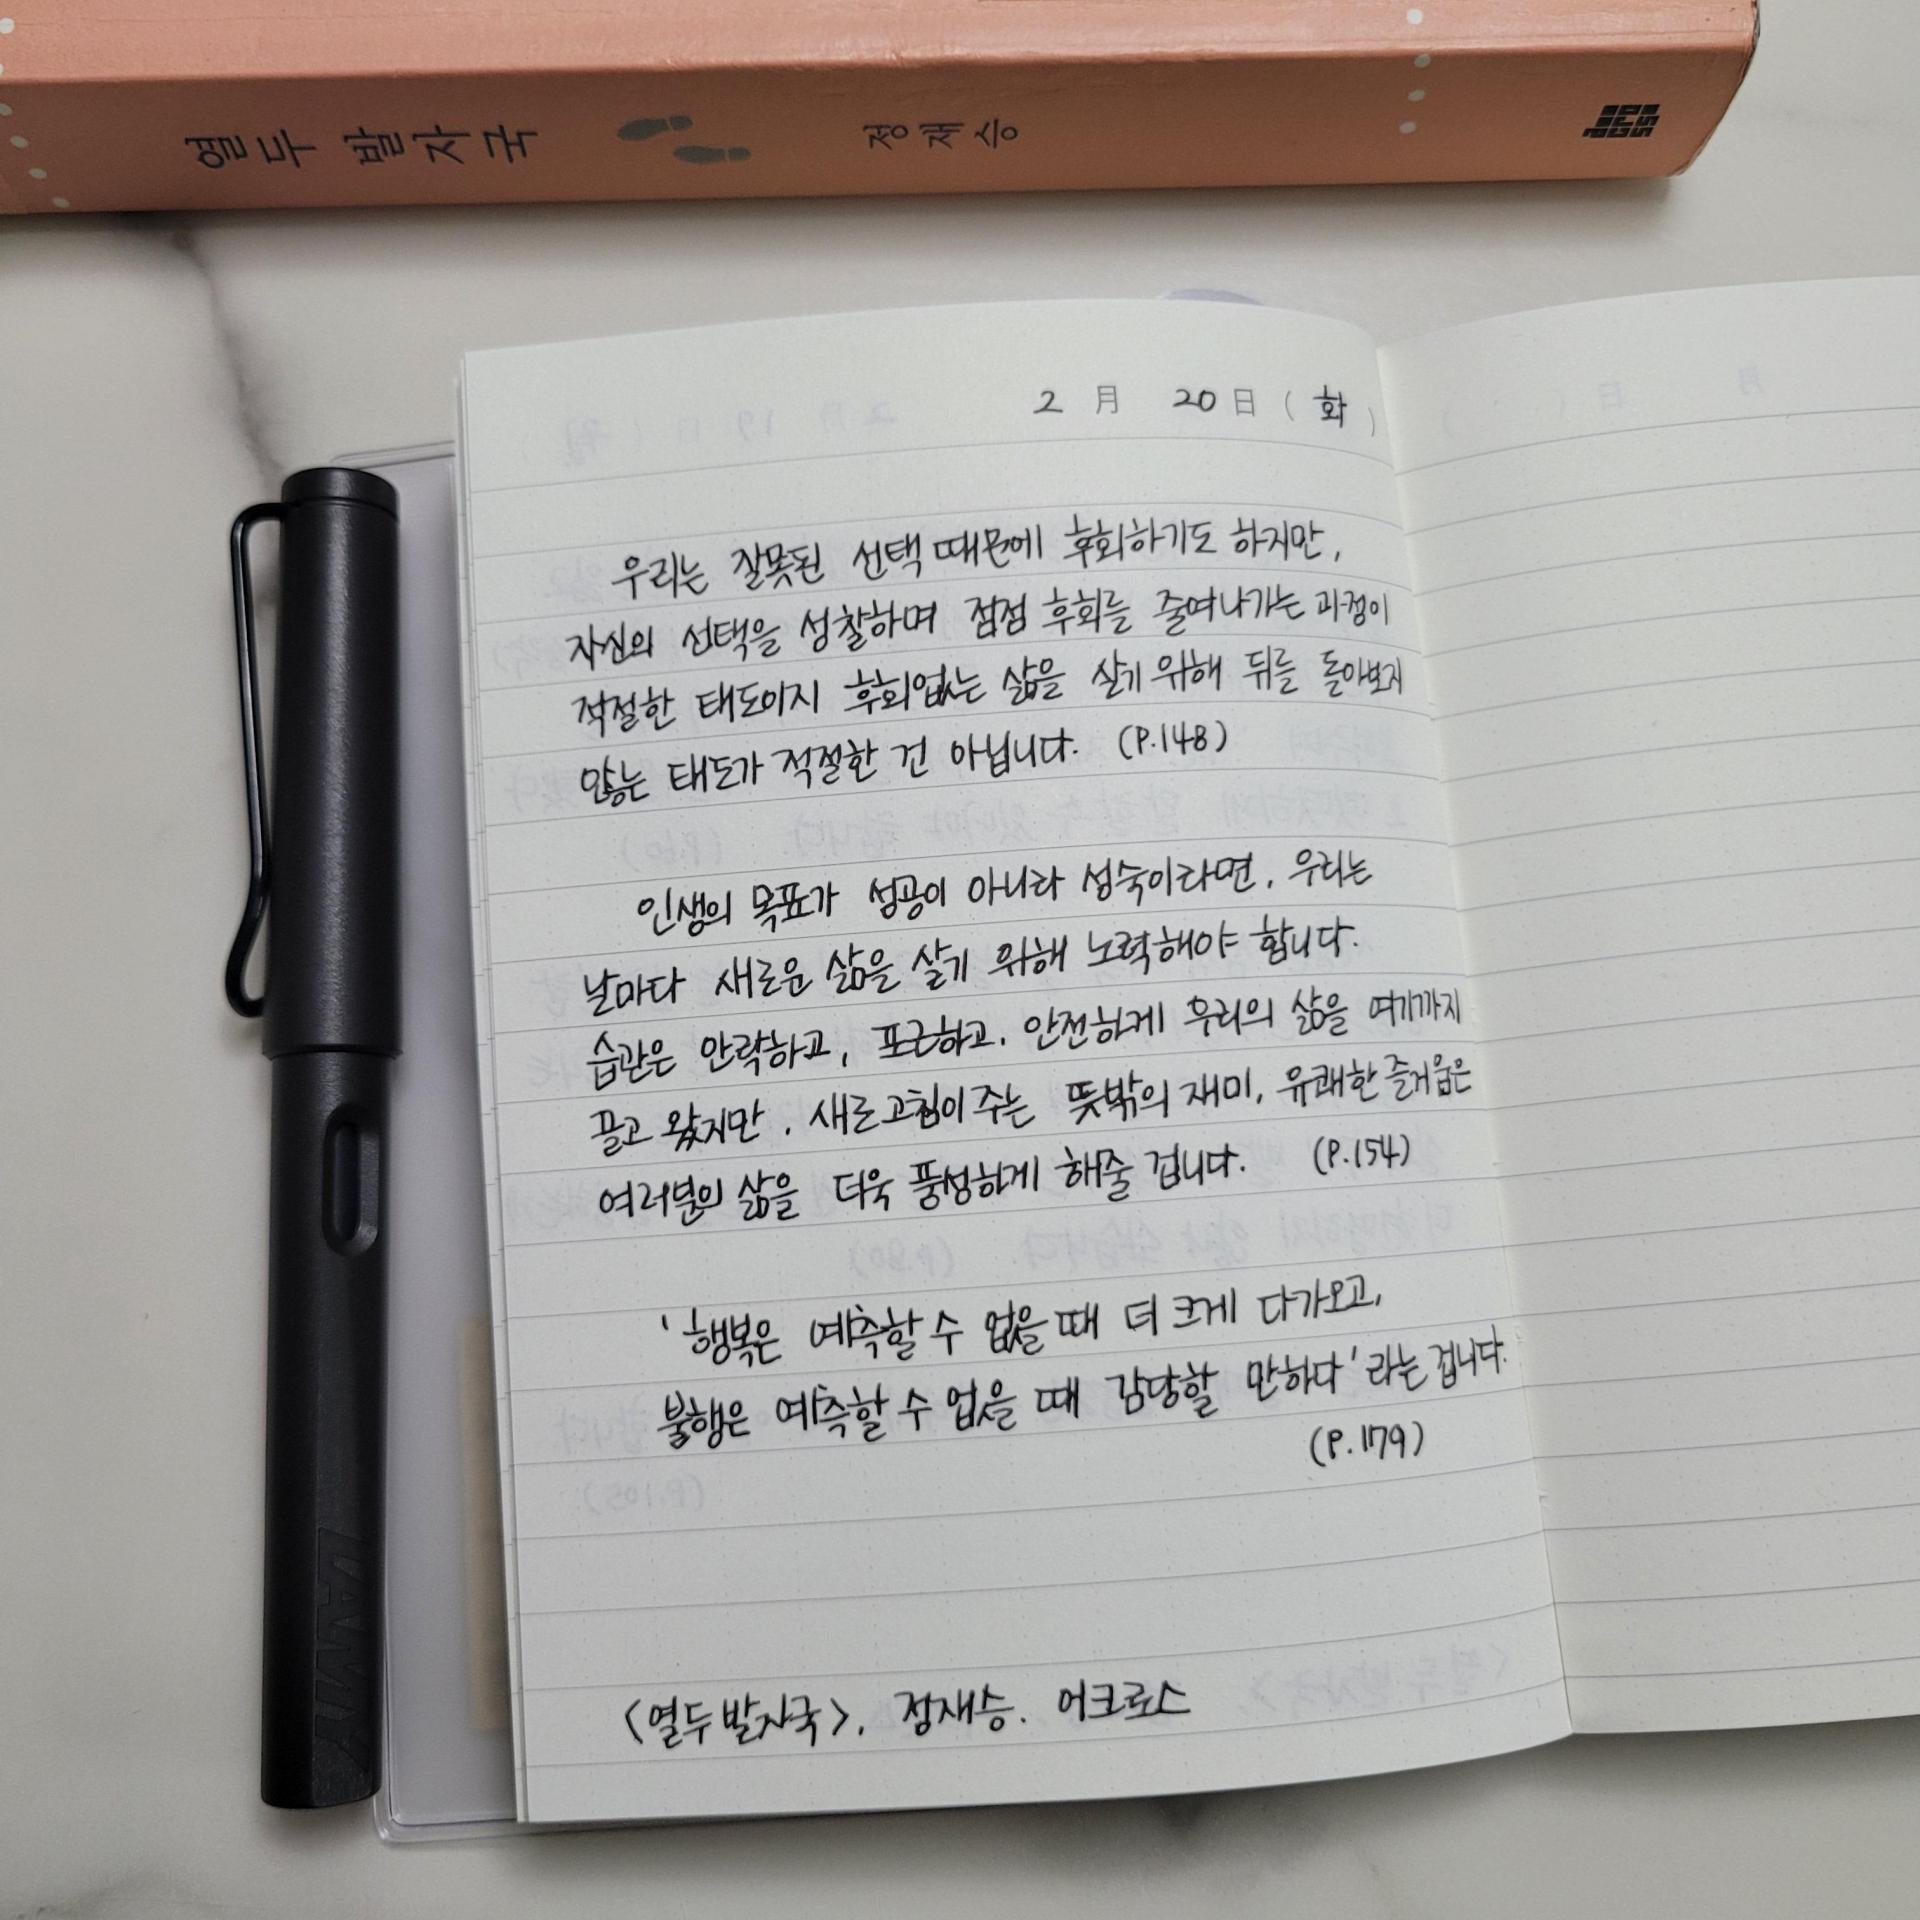 열두 발자국 정재승
2 月 20 日 ( 화 )
우리는 잘못된 선택 때문에 후회하기도 하지만,
자신의 선택을 성찰하며 점점 후회를 줄여나가는 과정이
적절한 태도이지 후회없는 삶을 살기 위해 뒤를 돌아보지
않는 태도가 적절한 건 아닙니다. (P.148)
인생의 목표가 성공이 아니라 성숙이라면, 우리는
날마다 새로운 삶을 살기 위해 노력해야 합니다.
습관은 안락하고, 포근하고, 안전하게 우리의 삶을 여기까지
끌고 왔지만, 새로고침이 주는 뜻밖의 재미, 유쾌한 즐거움은
여러분의 삶을 더욱 풍성하게 해줄 겁니다. (P.154)
'행복은 예측할 수 없을 때 더 크게 다가오고,
불행은 예측할 수 없을 때 감당할 만하다'라는 겁니다.
(P.179)
<열두 발자국>, 정재승. 어크로스
LAMY